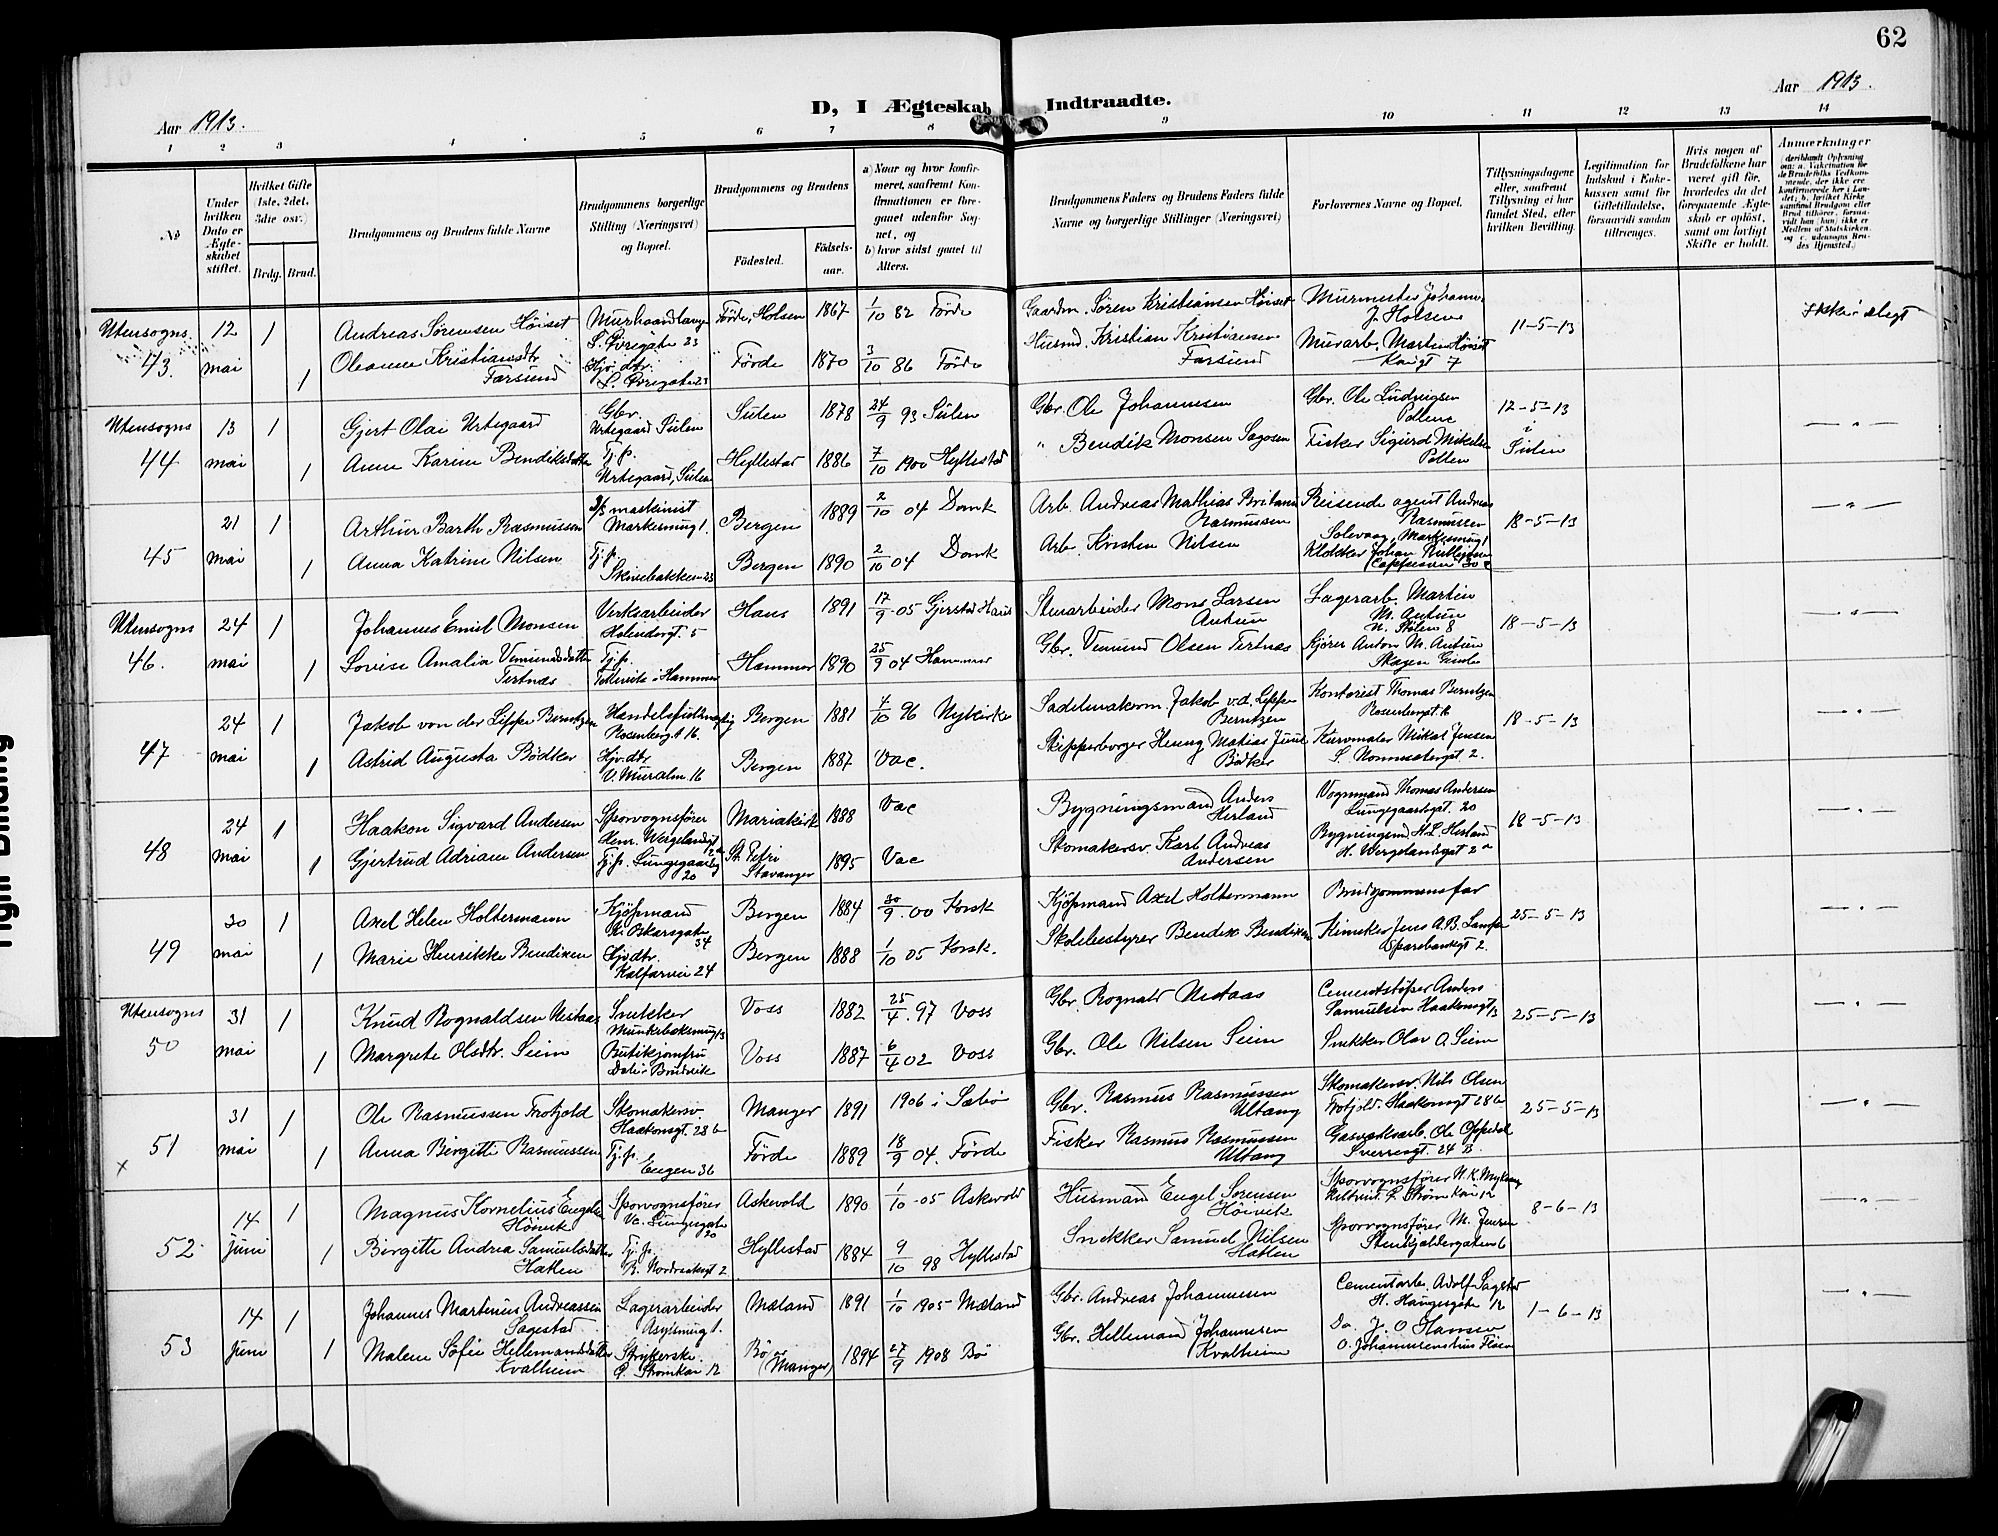 62
Aar 1913.
D, I Ægteskab Indtraadte.
Aar 1913.
1 2 3 4 5 6 7 8 9 10 11 12 13 14
No
Under hvilken Dato er Ægteskabet stiftet.
Hvilket Gifte (1ste, 2det, 3die osv.)
Brdg. Brud.
Brudgommens og Brudens fulde Navne
Brudgommens borgerlige Stilling (Næringsvei) og Bopæl.
Brudgommens og Brudens
Födested.
Födsels-aar.
a) Naar og hvor konfirmeret, saafremt Konfirmationen er foregaaet udenfor Sognet, og
b) hvor sidst gaaet til Alters.
Brudgommens Faders og Brudens Faders fulde Navne og borgerlige Stillinger (Næringsvei)
Forlovernes Navne og Bopæl.
Tillysningsdagene eller, saafremt Tillysning ei har fundet Sted, efter hvilken Bevilling.
Legitimation for Indskud i Enkekassen samt for Giftetilladelse, forsaavidt saadan tiltrænges.
Hvis nogen af Brudefolkene har været gift før, hvorledes da det foregaaende Ægteskab er oplöst, samt om lovligt Skifte er holdt.
Anmærkninger
(deriblandt Oplysning om: a. Vakcination for de Brudefolks Vedkommende, der ikke ere konfirmerede her i Landet; b. hvilket Kirkesamfund Brudgom eller Brud tilhörer, forsaavidt han (hun) ikke er Medlem af Statskirken, og c. udensogns Brudes Hjemsted.)
Utensogns 43. 12 mai 1 Andreas Sørensen Höiset Murhaandlanger Förde, Holsen 1867 1/10 82 Förde Gaardm. Sören Kristiansen Höiset Murmester Johannes J. Holsen 11-5-13 Ikke i slegt
1 Oleanne Kristiansdtr. Farsund Hjv. dtr. Förde 1870 3/10 86 Förde Husmd. Kristian Kristiansen Farsund Murarb. Martin Höiset
Utensogns 44 13 mai 1 Gjert Olai Urtegaard Gbr. Urtegaard Sulen Sulen 1878 24/9 93 Sulen Gbr. Ole Johannesen Gbr. Ole Ludvigsen Pollen 12-5-13 i Sulen — " —
1 Anne Karine Bendiksdatter Tj.p. Urtegaard, Sulen Hyllestad 1886 7/10 1900 Hyllestad " Bendik Monsen Fisker Sigurd Mikelsen Pollen
45 21 mai 1 Arthur Barth Rasmussen maskinist Markesmug 1. Bergen 1889 2/10 04 Domk Arb. Andreas Mathias Rasmussen Reisende agent Andreas Rasmussen Solevaag, Markesmug 1 18-5-13 — " —
1 Anna Katrine Nilsen Tj.p. Skivebakken 23 Bergen 1890 2/10 04 Domk Arb. Kristen Nilsen Klokker Johan
Utensogns 46. 24 mai 1 Johannes Emil Monsen Verksarbeider Holendergt. 5 Haus 1891 17/9 05 Gjerstad Haus Stenarbeider Mons Larsen Lagerarb. Martin M. N. Stölen 8 18-5-13 — " —
1 Lovise Amalia Vemundsdatter Tertnæs Tj.p. i Hammer Hammer 1890 25/9 04 Hammer Gbr. Vemund Olsen Tertnæs Kjörer Anton M.
47 24 mai 1 Jakob von der Lippe Berntzen Handelsfuldmægtig Rosenbergt 16. Bergen 1881 4/10 96 Nykirke Sadelmakerm. Jakob v.d. Lippe Berntzen Kontorist Thomas Berntzen Rosenbergt. 16 18-5-13 — " —
1 Astrid Augusta Bödtker Hjv. dtr. V. Muralm. 16 Bergen 1887 Vac. Skipperborger Henng Matias Juul Bödker Kurvmaker Mikal Jensen
48 24 mai 1 Haakon Sigvard Andersen Sporvognsförer Henr. Wergelandsgt 2a Mariakirk 1888 Vac Bygningsmand Anders Herland Vognmand Thomas Andersen Lungegaardsgt. 20 18-5-13 — " —
1 Gjertrud Adriane Andersen Tj.p. 20 St. Petri Stavanger 1895 Vac Skomakersv. Karl Andreas Andersen Bygningsmd H.L. Herland H. Wergelandsgt 2a
49 30 mai 1 Axel Helen Holtermann Kjöpmand St. Oskarsgate 34 Bergen 1884 30/9 00 Korsk Kjöpmand Axel Holtermann Brudgommens far 25-5-13 — " —
1 Marie Henrikke Bendixen Hjv. dtr. Kalfarvei 24 Bergen 1888 1/10 05 Korsk. Skolebestyrer Bendix Bendixen Jens A.B. Sparebanksgt 2.
Utensogns 50 31 mai 1 Knud Rognaldsen Nestaas Snekker 13 Voss 1882 25/4 97 Voss Gbr. Rognald Nestaas Cementstøper Anders Samuelsen Haakonsgt 13 25-5-13 — " —
1 Margrete Olsdtr. Seim Butikjomfru Dale i Bruvik Voss 1887 6/4 02 Voss Gbr. Ole Nilsen Seim Snekker Olav O. Seim
51 x 31 mai 1 Ole Rasmussen Frotjold Skomakersv. Haakonsgt. 28b Manger 1891 1906 i Sæbö Gbr. Rasmus Rasmussen Ultang Skomakersv. Nils Olsen Frotjold. Haakonsgt 28b 25-5-13 — " —
1 Anna Birgitte Rasmussen Tj.p. Engen 36 Förde 1889 18/9 04. Förde Fisker Rasmus Rasmussen Ultang Gasverkarb. Ole Oppedal Sverresgt. 24 B.
52 14 juni 1 Magnus Kornelius Engelsen Höivik Sporvognsförer 20 Askevold 1890 1/10 05 Askevold Husmand Engel Sørensen Höivik Sporvognsfører N.K. Strömkai 12 8-6-13 — " —
1 Birgitte Andrea Samuelsdatter Hatlen Tj.p. R. Nordraaksgt 2 Hyllestad 1884 9/10 98 Hyllestad Snekker Samuel Nilsen Hatlen Sporvognsfører M. Jensen Stenkjeldergaten 6
53 14 juni 1 Johannes Martinus Andreassen Sagestad Lagerarbeider Asylsmug 1. Mæland 1891 1/10 1905 Mæland Gbr. Andreas Johannesen Cementarb. Adolf Sagstad H. Haugesgate 12 1-6-13 — " —
1 Malene Sofie Hellemandsdatter Kvalheim Strykerske. Strömkai 12 Bö (Manger) 1894 27/9 1908 Bö Gbr. Hellemand Johannesen Kvalheim Do. J. O. Hansen